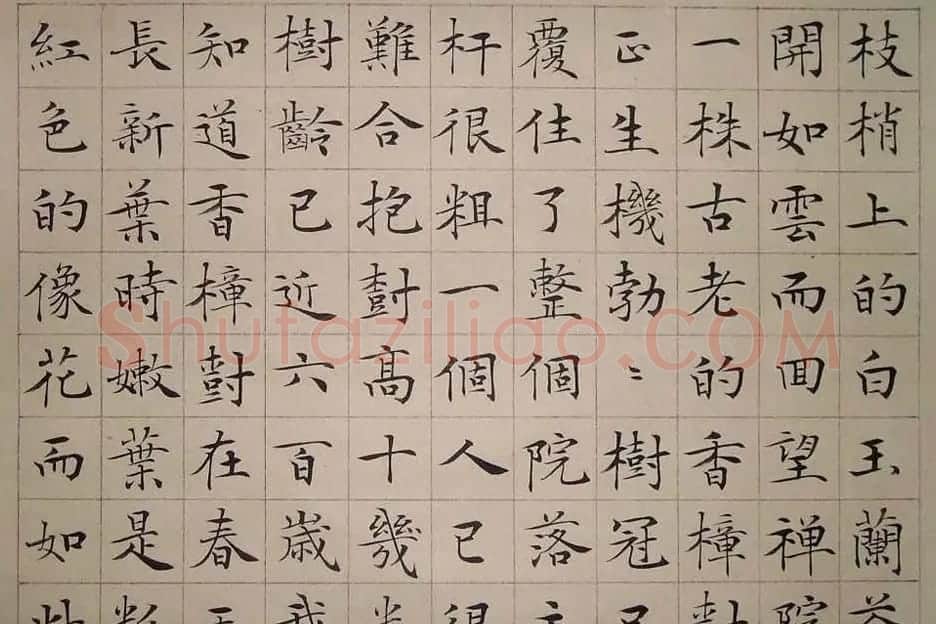 枝梢上的白玉蘭
開如雲而囬望禅院
一株古老的香樟樹
正生機勃〻樹冠
覆住了整個院落
杆很粗一個人已很
難合抱樹高十幾米
樹齡已近六百歲我
知道香樟樹在春天
長新葉時嫩葉是粉
紅色的像花而如
Shufaziliao.COM